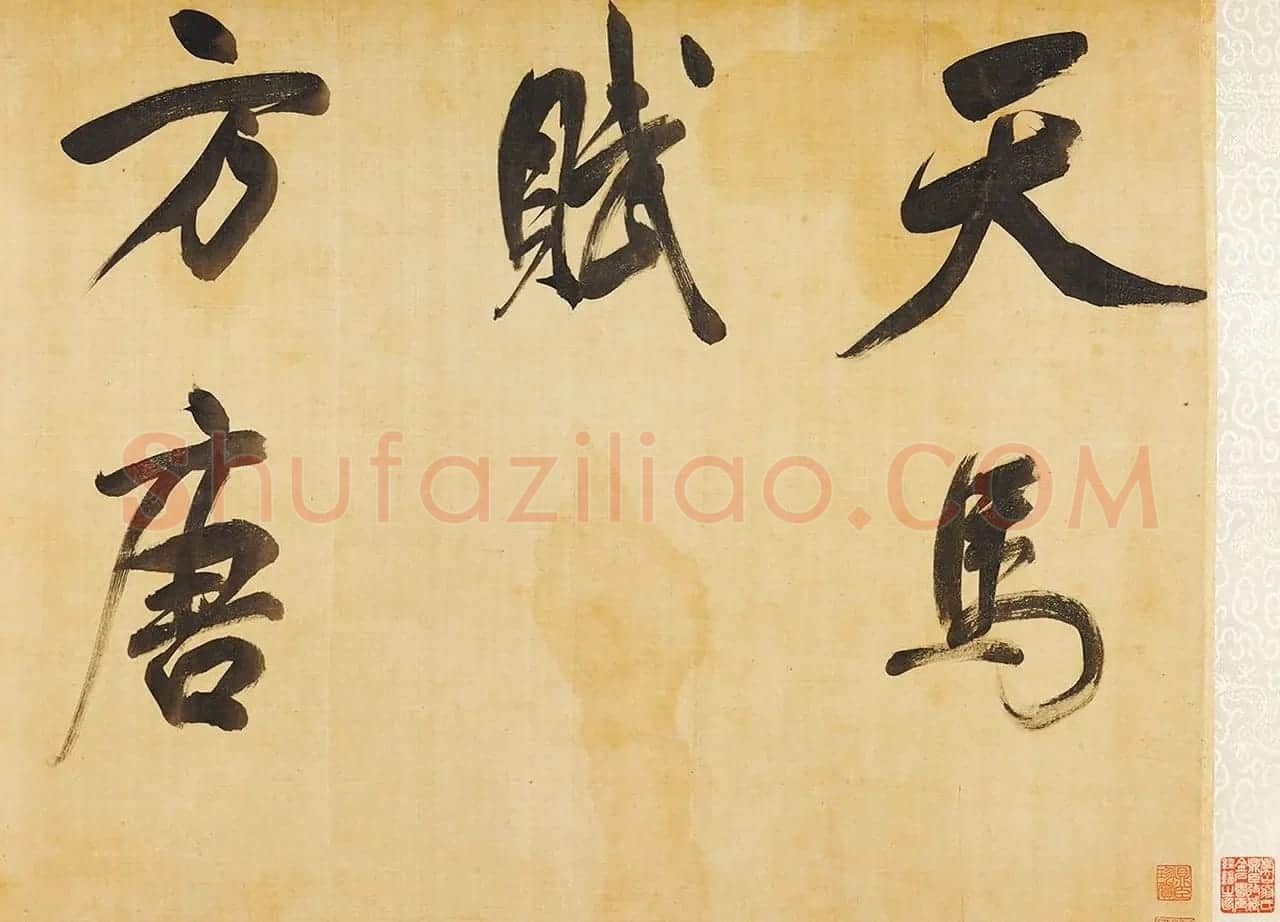 天馬
賦
方唐
Shufaziliao.COM